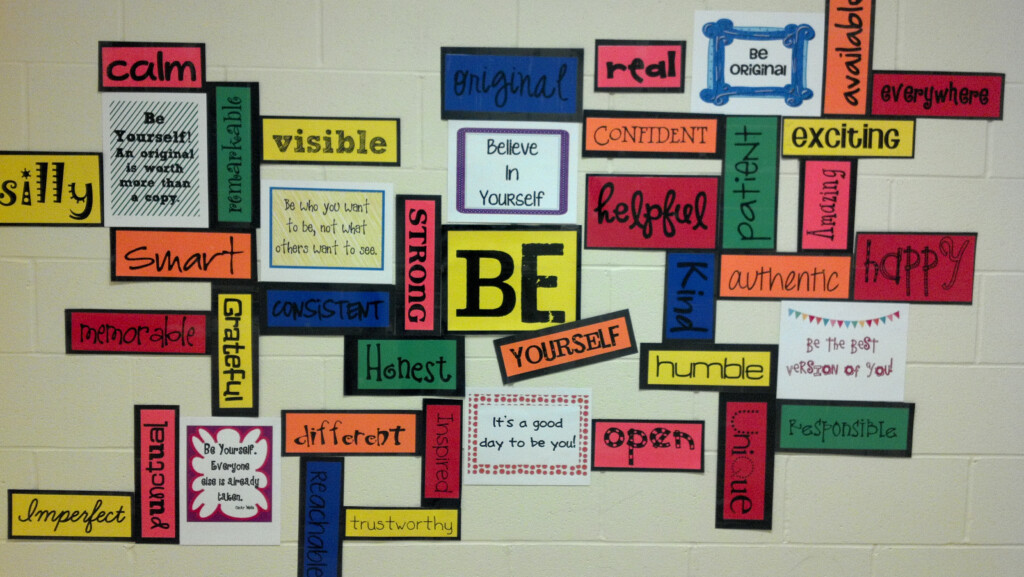 calm
Be
Yourself!
An original
is worth
more than
a copy.
remarkable
visible
silly
Be who you want
to be, not what
others want to see.
Smart
STRONG
original
real
Be
Original
available
everywhere
Believe
In
Yourself
CONFIDENT
patient
exciting
helpful
Amazing
BE
YOURSELF
Kind
authentic
happy
memorable
Grateful
CONSISTENT
Honest
humble
Be the Best
version of you!
natural
Be Yourself.
Everyone
else is already
taken.
different
Inspired
It's a good
day to be you!
open
Unique
Responsible
Imperfect
Reachable
trustworthy